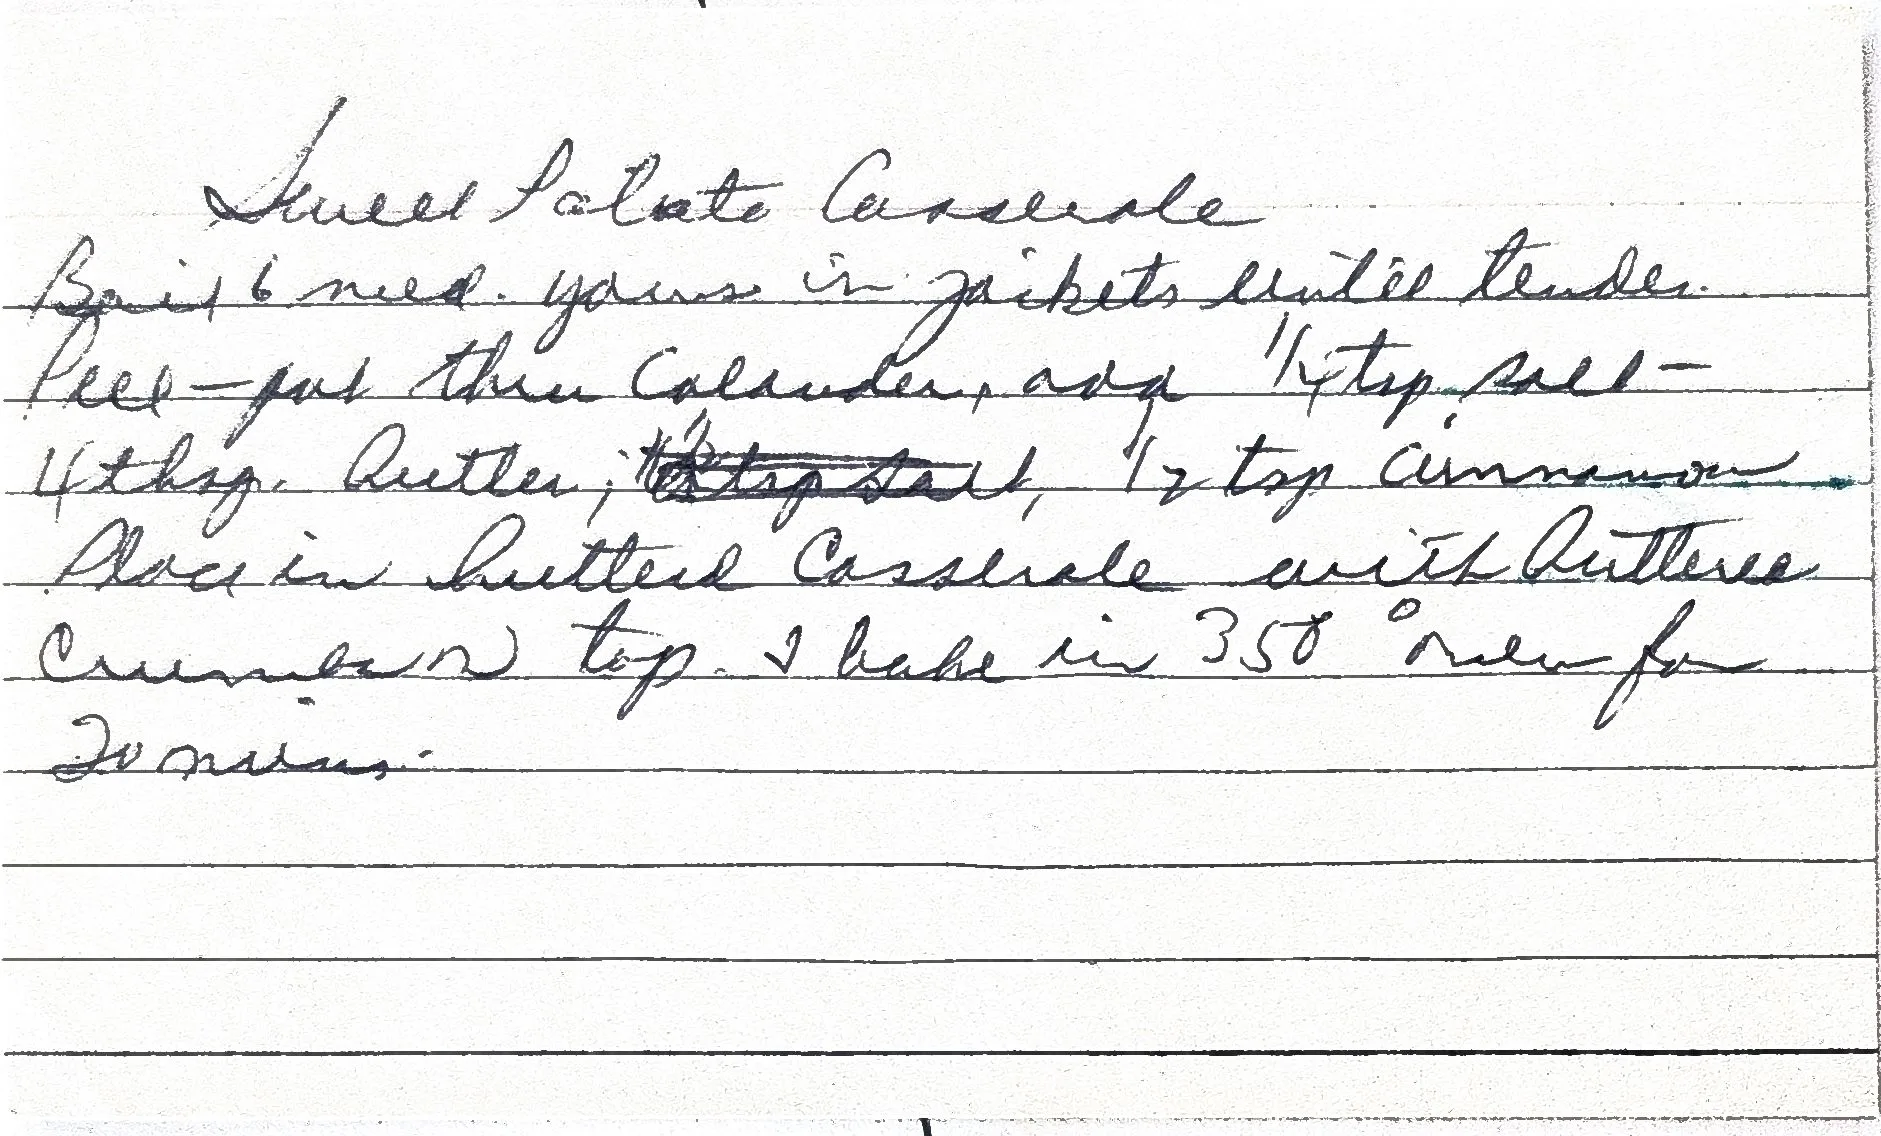 Sweet Potato Casserole
Boil 6 med. yams in jackets until tender.
Peel - put thru Colander, add 1/4 tsp salt -
4 tbsp. butter, 1/2 tsp Cinnamon
Place in butterd Casserole with buttered
Crumbs on top. I bake in 350° oven for
20 mins.